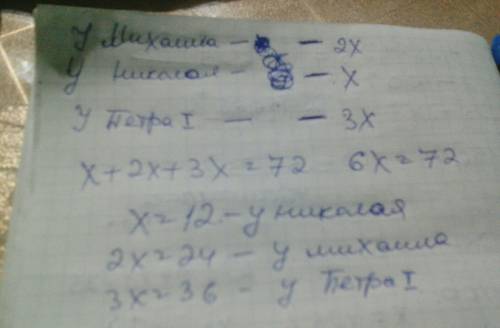 У Михаила – – 2х
У Николая – – х
У Петра I – – 3х
х+2х+3х=72 6х=72
х=12 – у николая
2х=24 – у михаила
3х=36 – у Петра I